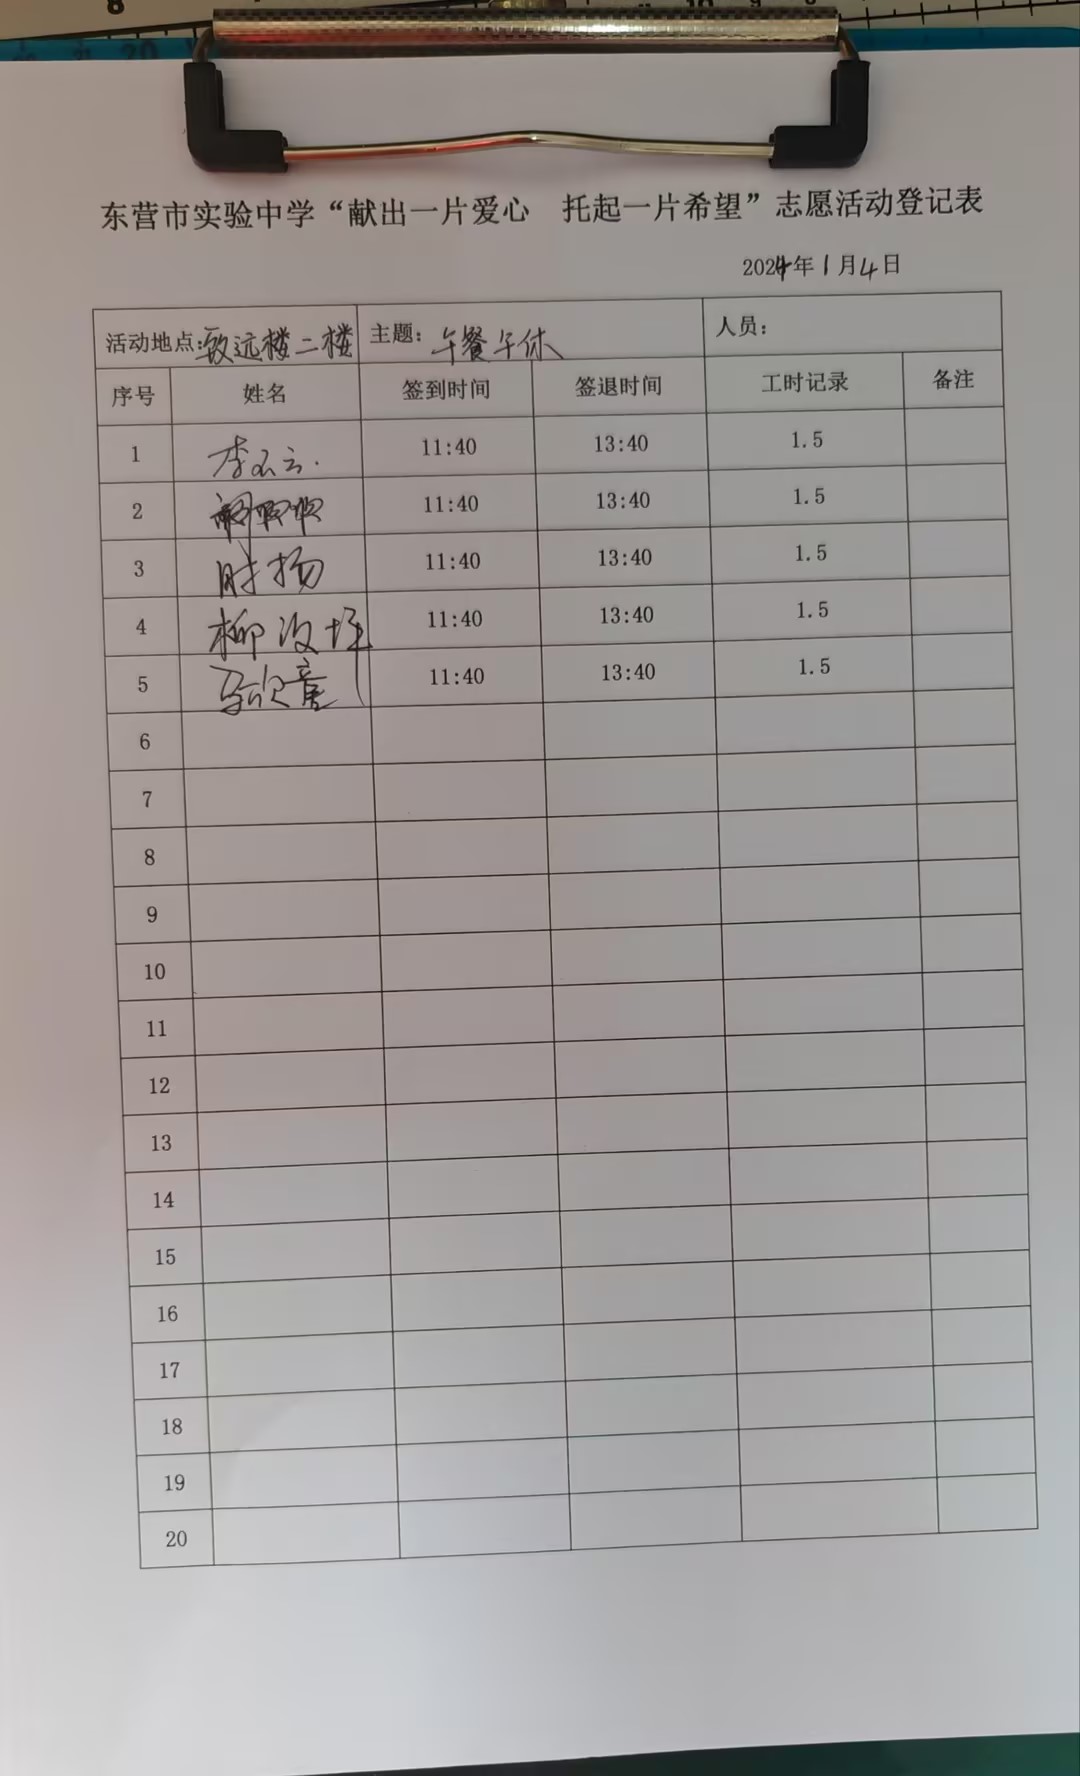 东营市实验中学“献出一片爱心 托起一片希望”志愿活动登记表
2024年1月4日
活动地点:致远楼二楼 主题: 午餐午休 人员:
序号 姓名 签到时间 签退时间 工时记录 备注
1 李云 11:40 13:40 1.5
2 11:40 13:40 1.5
3 时扬 11:40 13:40 1.5
4 柳 11:40 13:40 1.5
5 马欣童 11:40 13:40 1.5
6
7
8
9
10
11
12
13
14
15
16
17
18
19
20